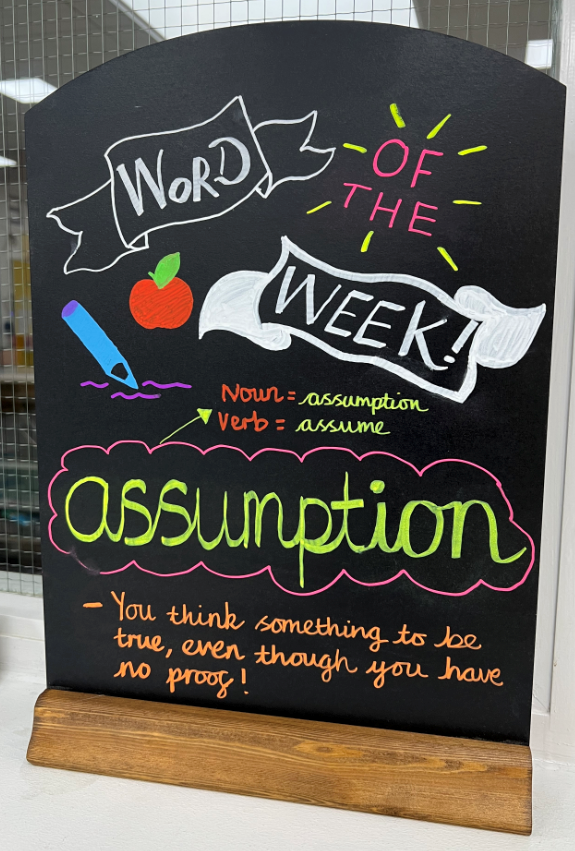 WORD
OF
THE
WEEK!
Noun = assumption
Verb = assume
assumption
- You think something to be
true, even though you have
no proof!